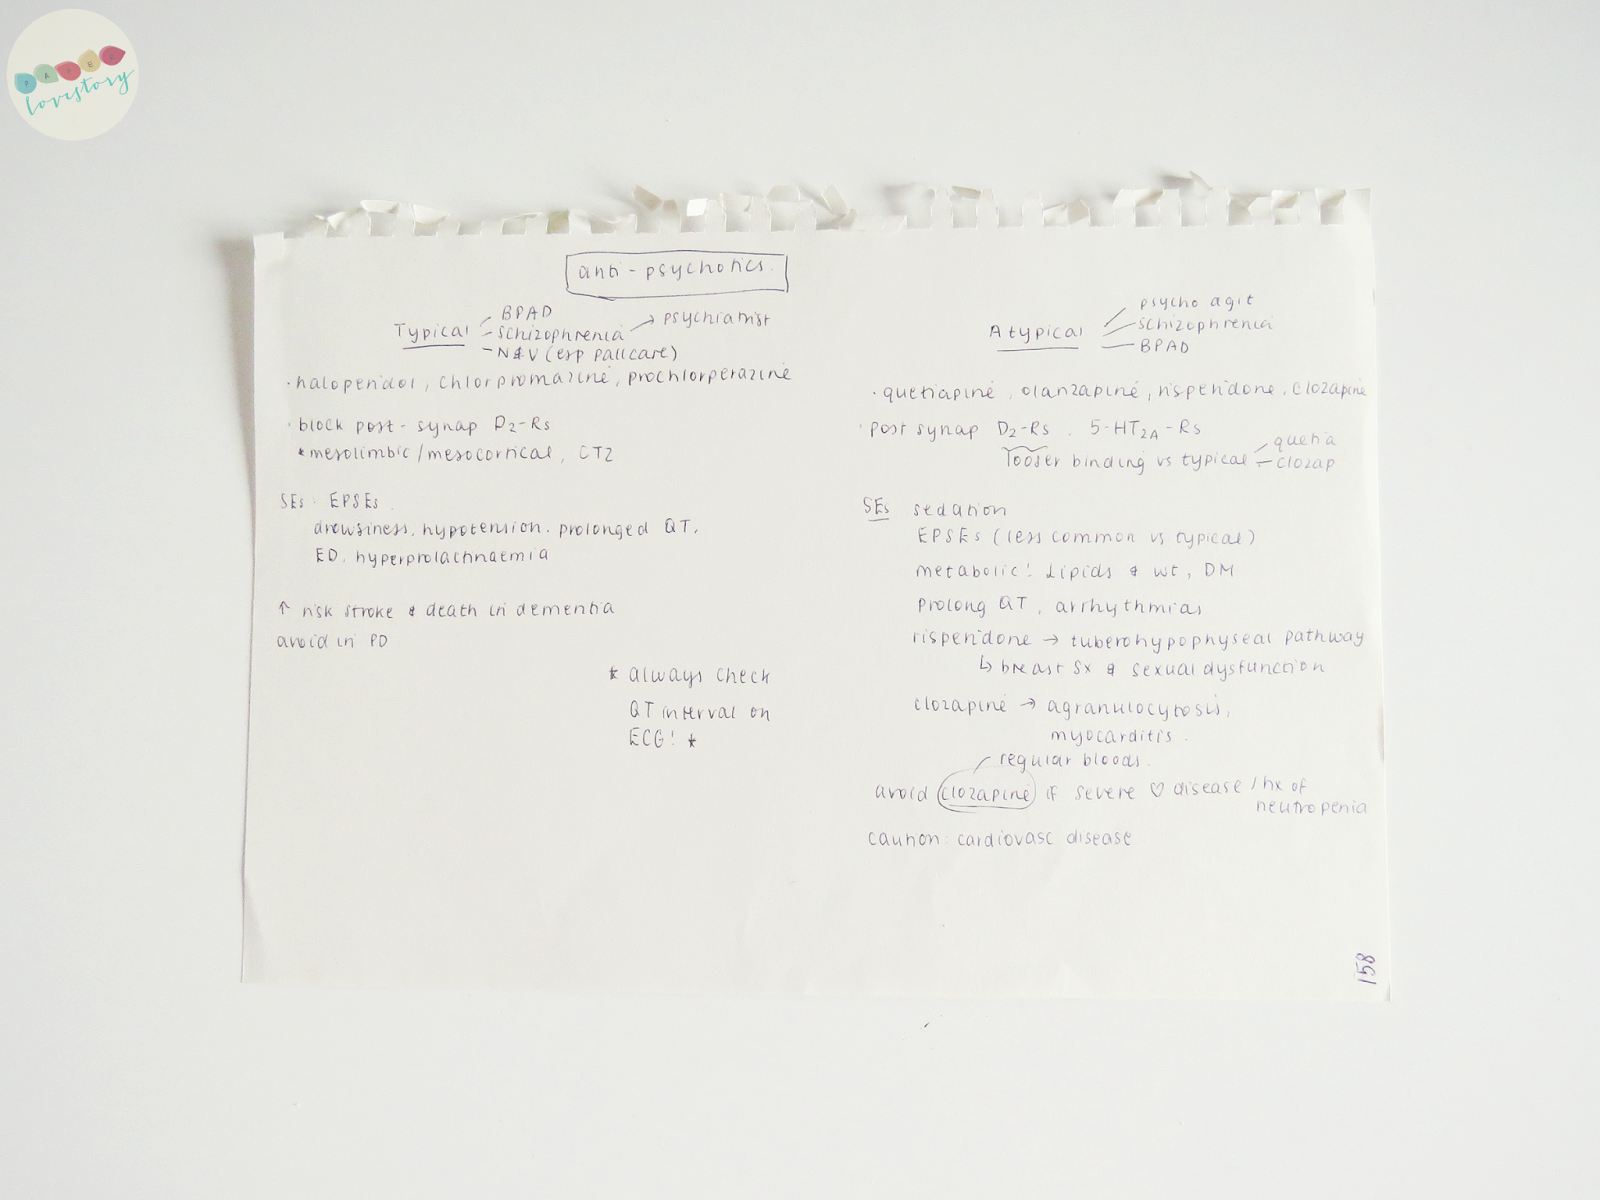 PAPER
lovestory
anti-psychotics.
Typical
BPAD
schizophrenia → psychiatrist
N&V (esp pall care)
· haloperidol, chlorpromazine, prochlorperazine
· block post-synap D2-Rs
* mesolimbic/mesocortical, CTZ
SEs: EPSEs.
drowsiness, hypotension, prolonged QT,
ED, hyperprolactinaemia
↑ risk stroke & death in dementia
avoid in PD
* always check
QT interval on
ECG! *
Atypical
psycho agit
schizophrenia
BPAD
· quetiapine, olanzapine, risperidone, clozapine
· post synap D2-Rs, 5-HT2A-Rs
looser binding vs typical
quetia
clozap
SEs sedation
EPSEs (less common vs typical)
metabolic: lipids & wt, DM
prolong QT, arrhythmias
risperidone → tuberohypophyseal pathway
↳ breast sx & sexual dysfunction
clozapine → agranulocytosis,
myocarditis.
regular bloods.
avoid clozapine if severe ♡ disease / hx of
neutropenia
caution: cardiovasc disease
158